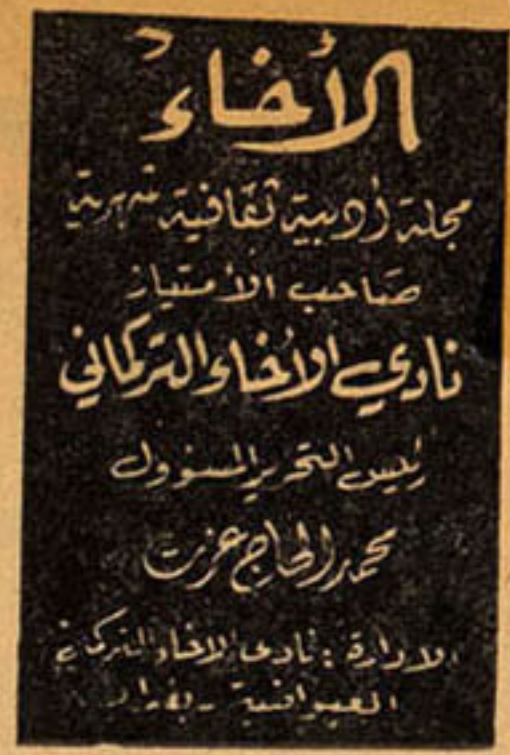 الأخاء
مجلة أدبية ثقافية شهرية
صاحب الأمتياز
نادي الأخاء التركماني
رئيس التحرير المسؤول
محمد الحاج عزت
الادارة : نادي الاخاء التركماني
العيواضية - بغداد